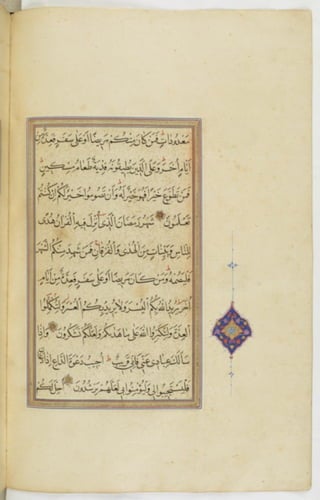 معدودات فمن كان منكم مريضا او على سفر فعدة من
ايام اخر وعلى الذين يطيقونه فدية طعام مسكين
فمن تطوع خيرا فهو خير له وان تصوموا خير لكم ان كنتم
تعلمون شهر رمضان الذى انزل فيه القران هدى
للناس وبينات من الهدى والفرقان فمن شهد منكم الشهر
فليصمه ومن كان مريضا او على سفر فعدة من ايام
اخر يريد الله بكم اليسر ولا يريد بكم العسر ولتكملوا
العدة ولتكبروا الله على ما هديكم ولعلكم تشكرون واذا
سالك عبادى عنى فانى قريب اجيب دعوة الداع اذا دعان
فليستجيبوا لى وليؤمنوا بى لعلهم يرشدون احل لكم